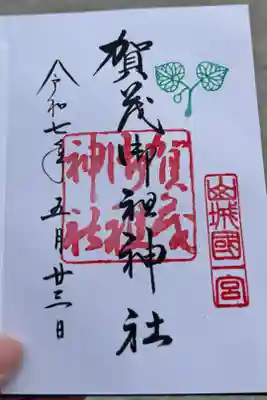 山城國一宮
賀茂御祖神社
賀茂御祖神社
令和七年五月廿三日